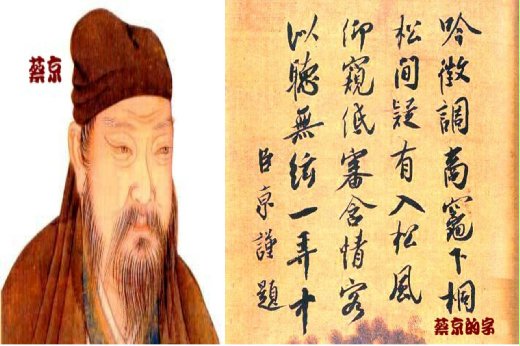 蔡京
吟徵調商竈下桐
松間疑有入松風
仰窺低審含情客
以聽無絃一弄中
臣京謹題
蔡京的字